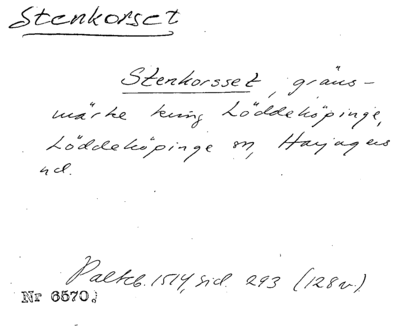 Stenkorset
Stenkorsset, gräns-
märke kring Löddeköpinge,
Löddeköpinge sn, Harjagers
hd.
Palteb. 1514, sid. 293 (128v.)
Nr 6570.